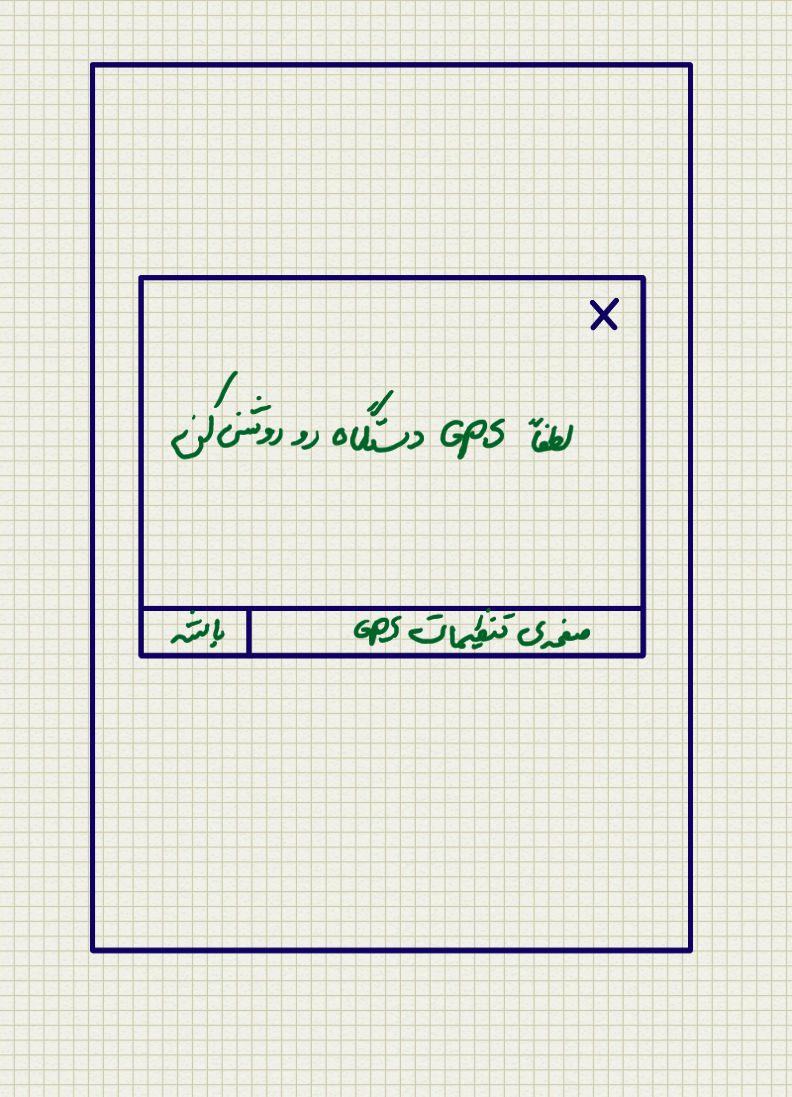 لطفاً GPS دستگاه رو روشن کن
صفحه‌ی تنظیمات GPS
باشه